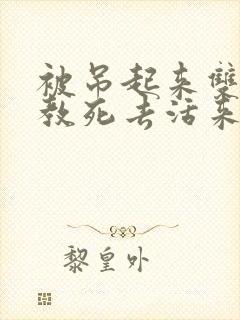 被吊起来双
教死去活来
黎皇外